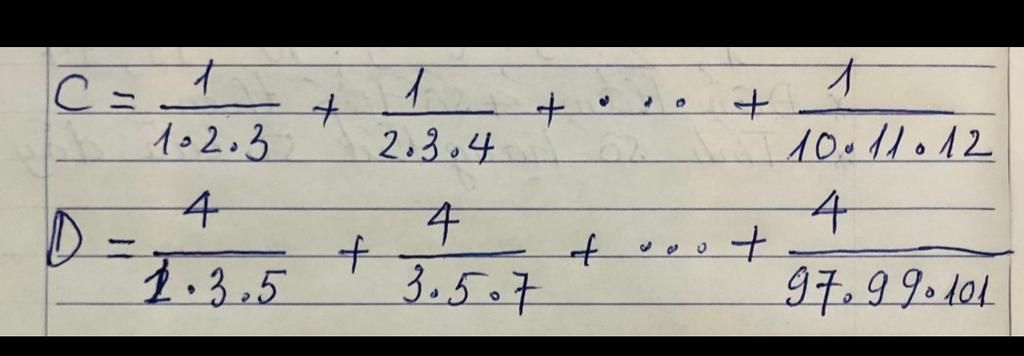 C = 1/(1.2.3) + 1/(2.3.4) + .... + 1/(10.11.12)
D = 4/(1.3.5) + 4/(3.5.7) + .... + 4/(97.99.101)